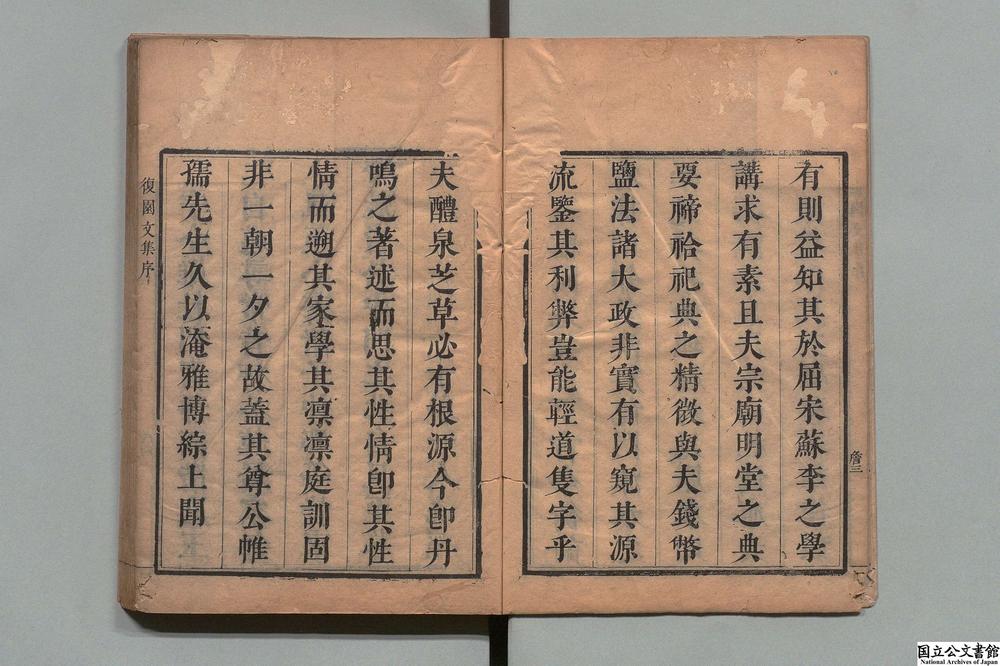 有則益知其於屈宋蘇李之學
講求有素且夫宗廟明堂之典
要禘祫祀典之精微與夫錢幣
鹽法諸大政非實有以窺其源
流鑒其利弊豈能輕道隻字乎
夫醴泉芝草必有根源今卽丹
鳴之著述而思其性情卽其性
情而遡其家學其凛凛庭訓固
非一朝一夕之故葢其尊公惟
孺先生久以淹雅博綜上聞
復園文集序
國立公文書館
National Archives of Japan